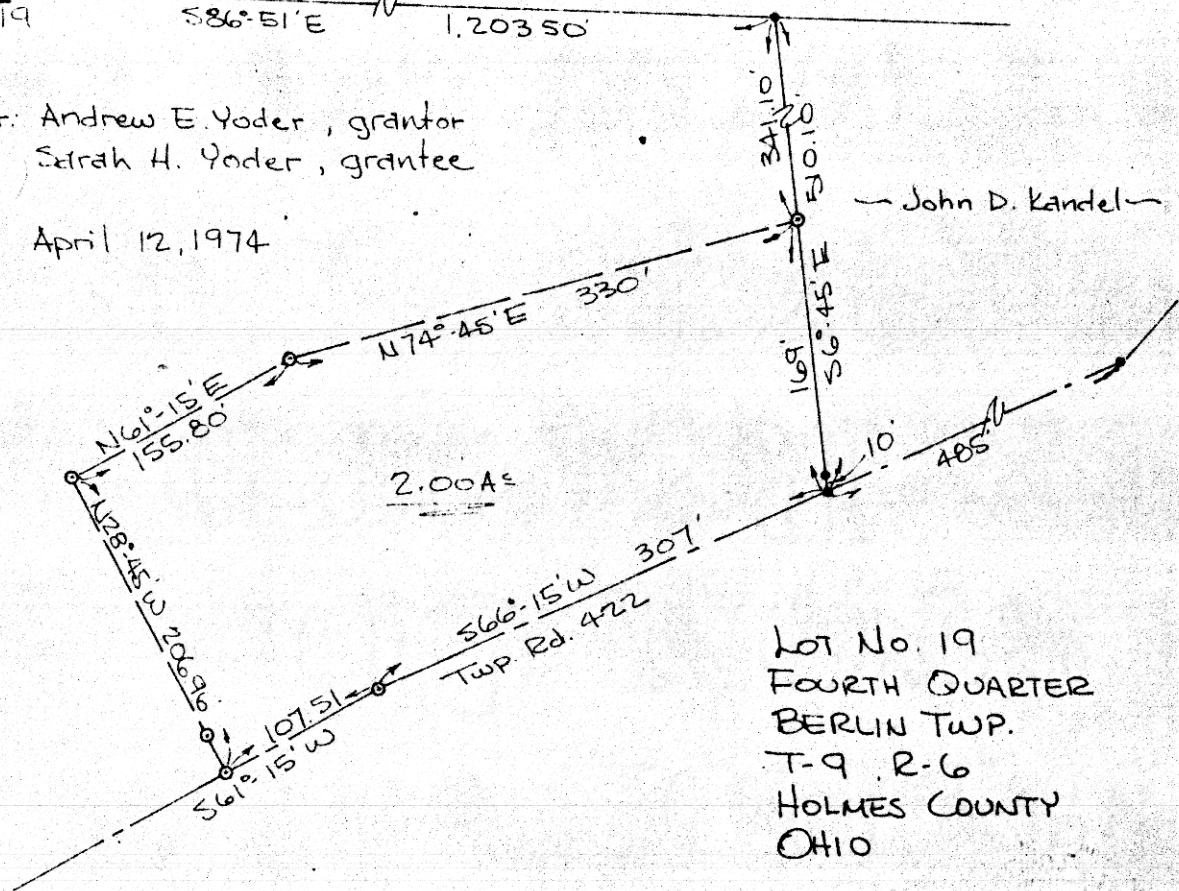 19 S86°-51'E 1,203.50'
r: Andrew E. Yoder, grantor
Sarah H. Yoder, grantee
April 12, 1974
341.10'
510.10'
~ John D. Kandel ~
N74°-45'E 330'
169'
S6°-45'E
N61°-15'E
155.80'
10'
485'
2.00 Ac
N28°-45'W 206.96'
S66°-15'W 307'
Twp. Rd. 422
107.51
S61°-15'W
LOT No. 19
FOURTH QUARTER
BERLIN TWP.
T-9, R-6
HOLMES COUNTY
OHIO